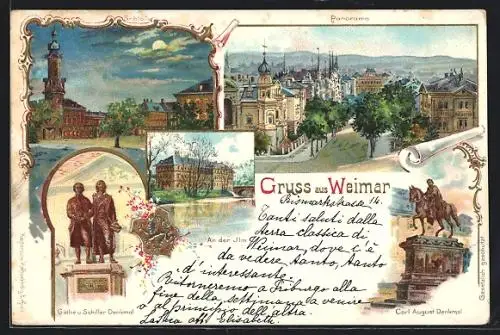 Schloss
Panorama
An der Ilm
Gruss aus Weimar
Bismarkstrasse 14.
Tanti saluti dalla
terra classica di
Weimar, dove c'è
da vedere tanto, tanto
d'interessante.
Ritorneremo a Friburgo alla
fine della settimana le venire
o al principio dell'altra
Elisabetta
Göthe u. Schiller Denkmal
Carl August Denkmal
Gesetzlich geschützt